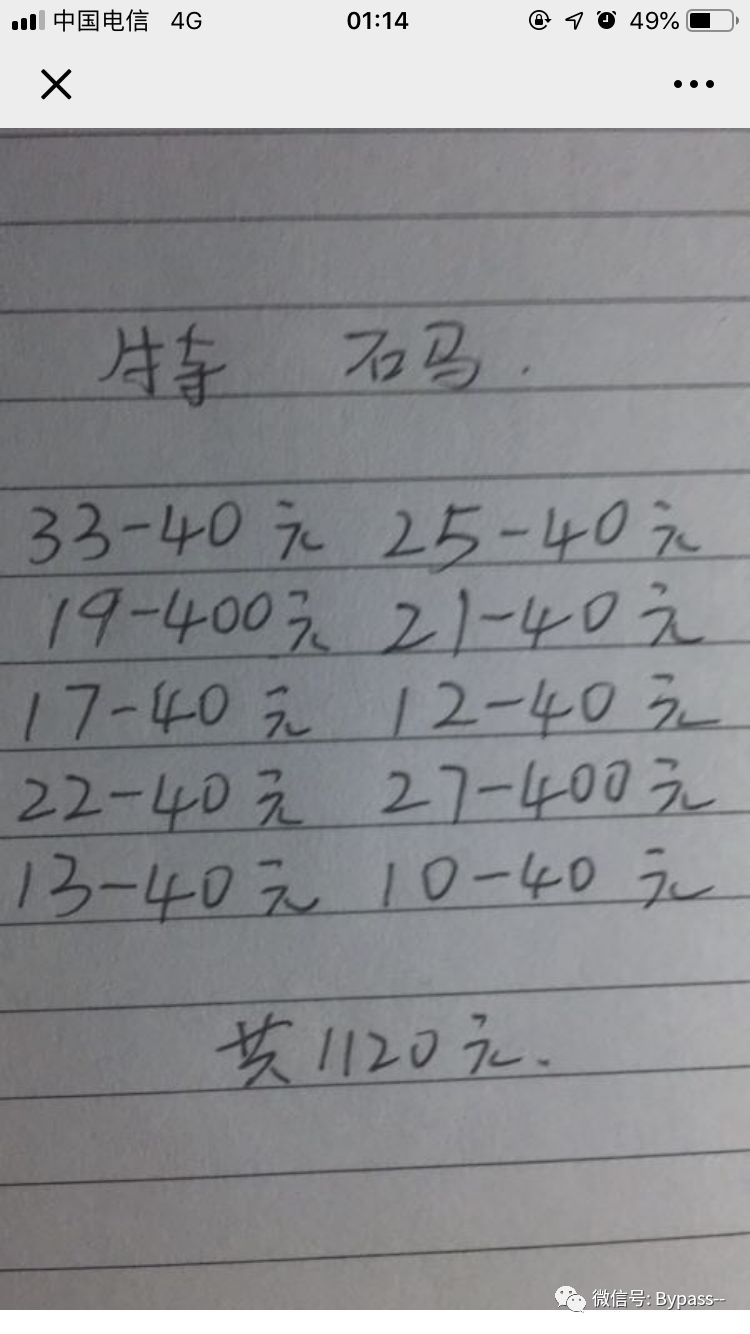 中国电信 4G 01:14 49%
特 石马.
33-40元 25-40元
19-400元 21-40元
17-40元 12-40元
22-40元 27-400元
13-40元 10-40元
共1120元.
微信号: Bypass--